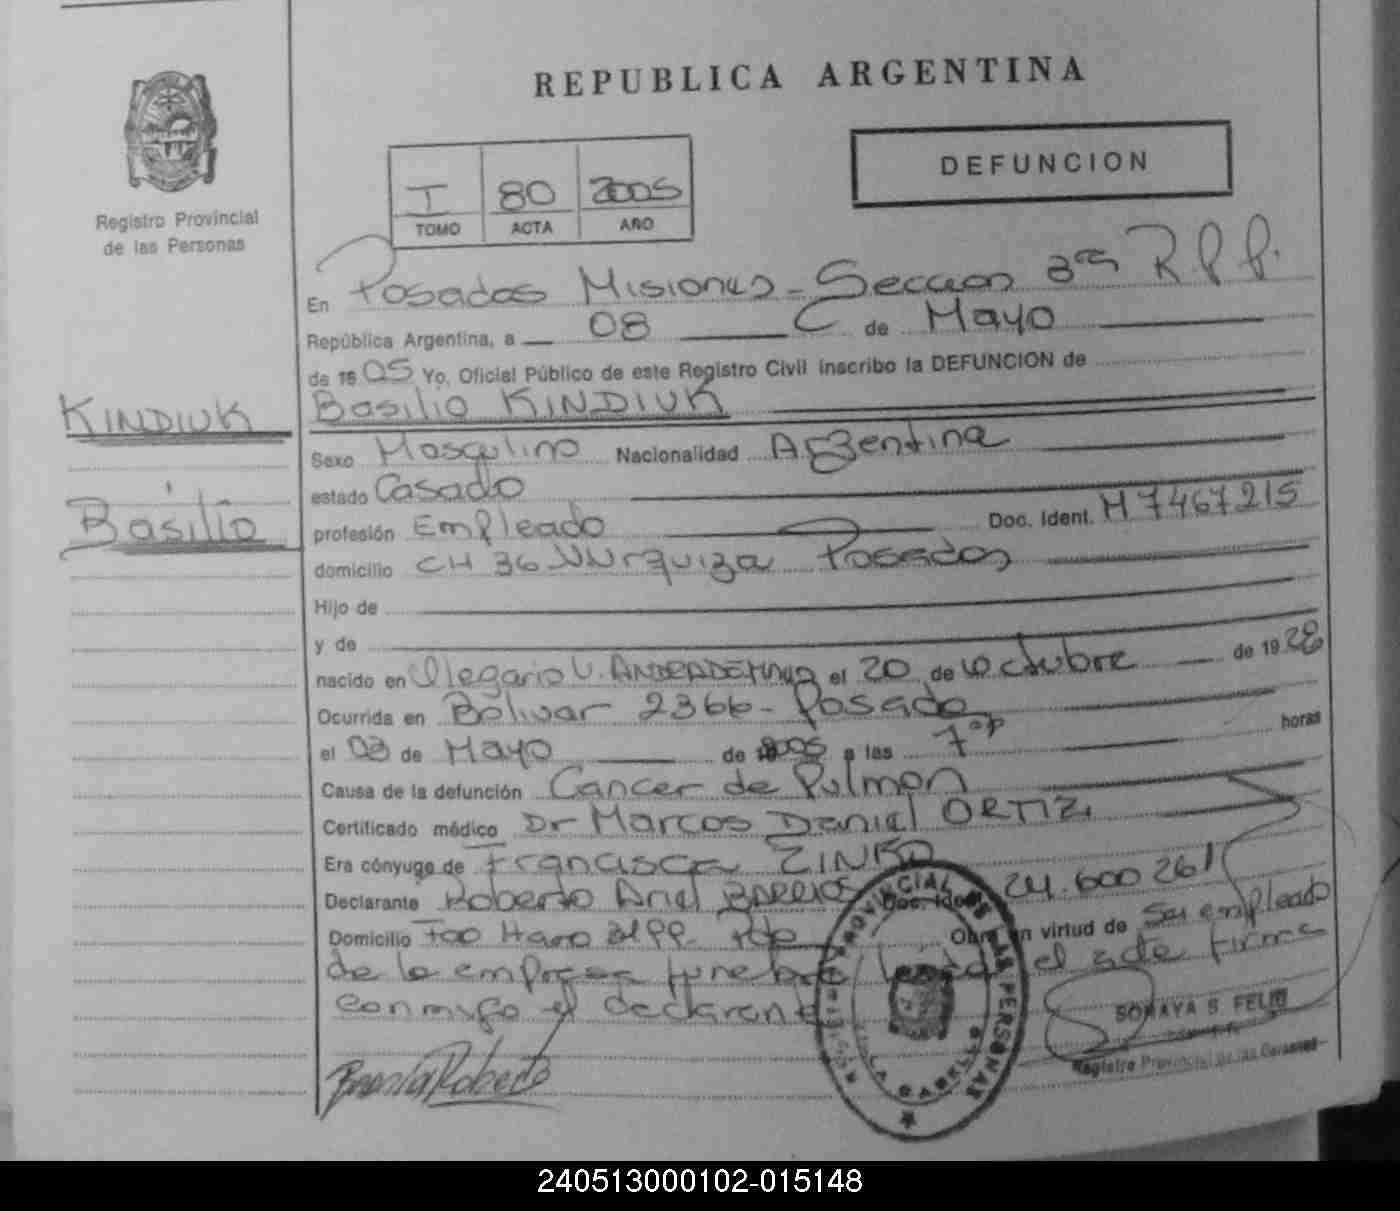 REPUBLICA ARGENTINA
DEFUNCION
I 80 2005
TOMO ACTA AÑO
Registro Provincial
de las Personas
En Posadas Misiones - Seccion 3ra R.P.P.
República Argentina, a 08 de Mayo
de 19 05 Yo, Oficial Público de este Registro Civil inscribo la DEFUNCION de
KINDIUK
Basilio KINDIUK
Sexo Masculino Nacionalidad Argentina
estado Casado
Basilio
profesión Empleado Doc. Ident. M 7467215
domicilio CH 36 Urquiza Posadas
Hijo de
y de
nacido en Olegario V. ANDRADE el 20 de Octubre de 1928
Ocurrida en Bolivar 2366 - Posadas
el 08 de Mayo de 2005 a las 7 horas
Causa de la defunción Cancer de Pulmon
Certificado médico Dr Marcos Daniel ORTIZ
Era cónyuge de Francisca ZINKO
Declarante Roberto Ariel BARRIOS Doc. Ident. 24.600 261
Domicilio Fco Haro Obra en virtud de Ser empleado
de la empresa funebre el acta firma
conmigo el declarante
REGISTRO PROVINCIAL DE LAS PERSONAS
SORAYA S. FELIU
Registro Provincial de las Personas
240513000102-015148